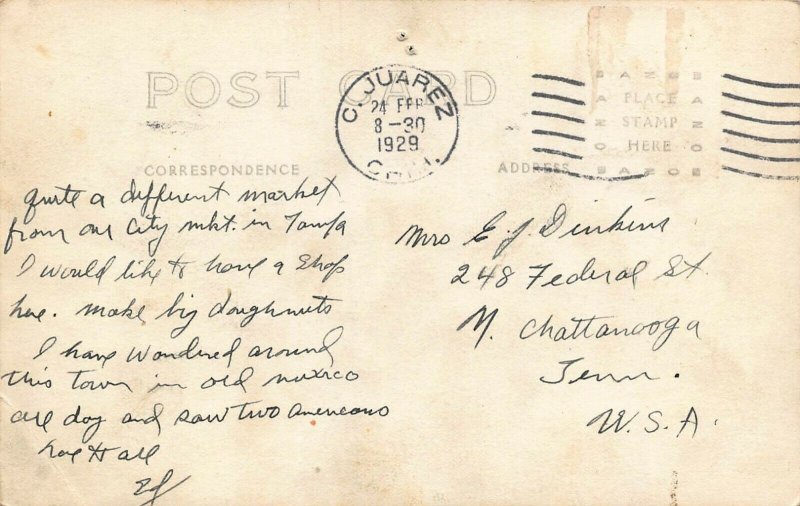 POST CARD
C. JUAREZ
24 FEB
8-30
1929
CHIH.
PLACE
STAMP
HERE
CORRESPONDENCE
ADDRESS
quite a different market
from our City mkt. in Tampa
I would like to have a Shop
here. make big doughnuts
I have wondered around
this town in old mexico
all day and saw two americans
love to all
Ed
Mrs E. J. Dinkins
248 Federal St.
N. Chattanooga
Tenn.
U.S.A.